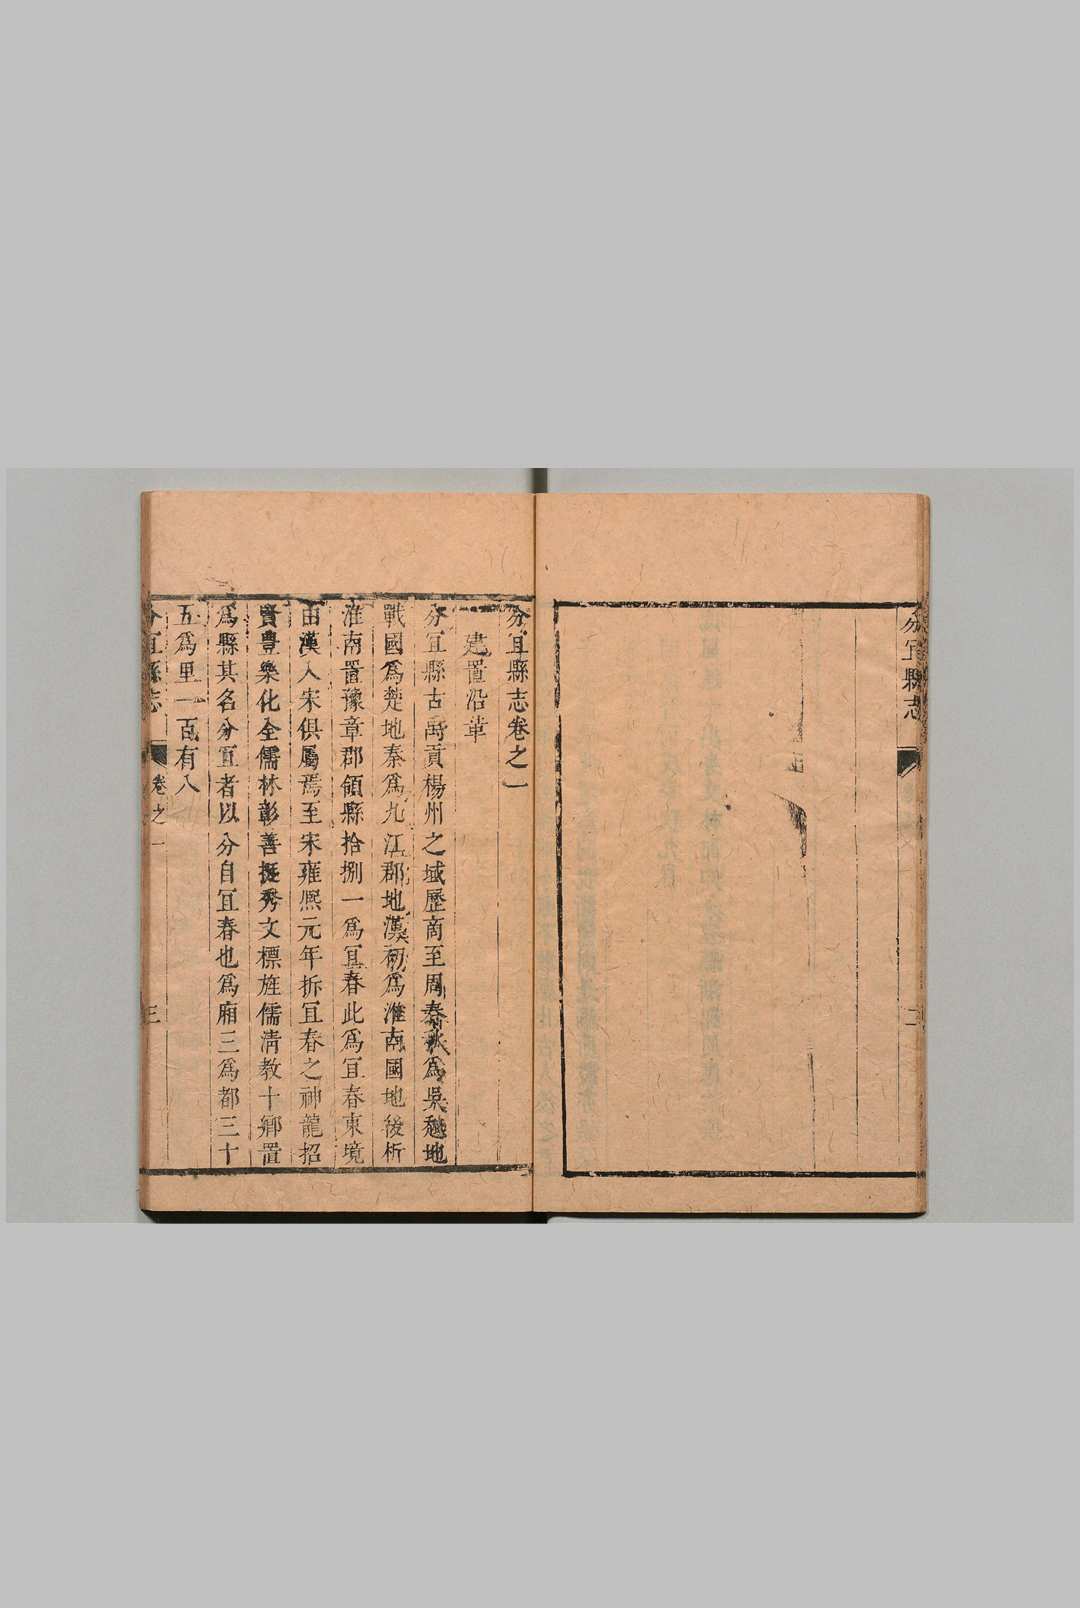 分宜縣志
二
分宜縣志卷之一
建置沿革
分宜縣古禹貢楊州之域歷商至周春秋爲吳越地
戰國爲楚地秦爲九江郡地漢初爲淮南國地後析
淮南置豫章郡領縣拾捌一爲宜春此爲宜春東境
由漢入宋俱屬焉至宋雍熈元年拆宜春之神龍招
賢豊樂化全儒林彰善挺秀文標旌儒清教十鄉置
爲縣其名分宜者以分自宜春也爲廂三爲都三十
五爲里一百有八
分宜縣志
卷之一
三